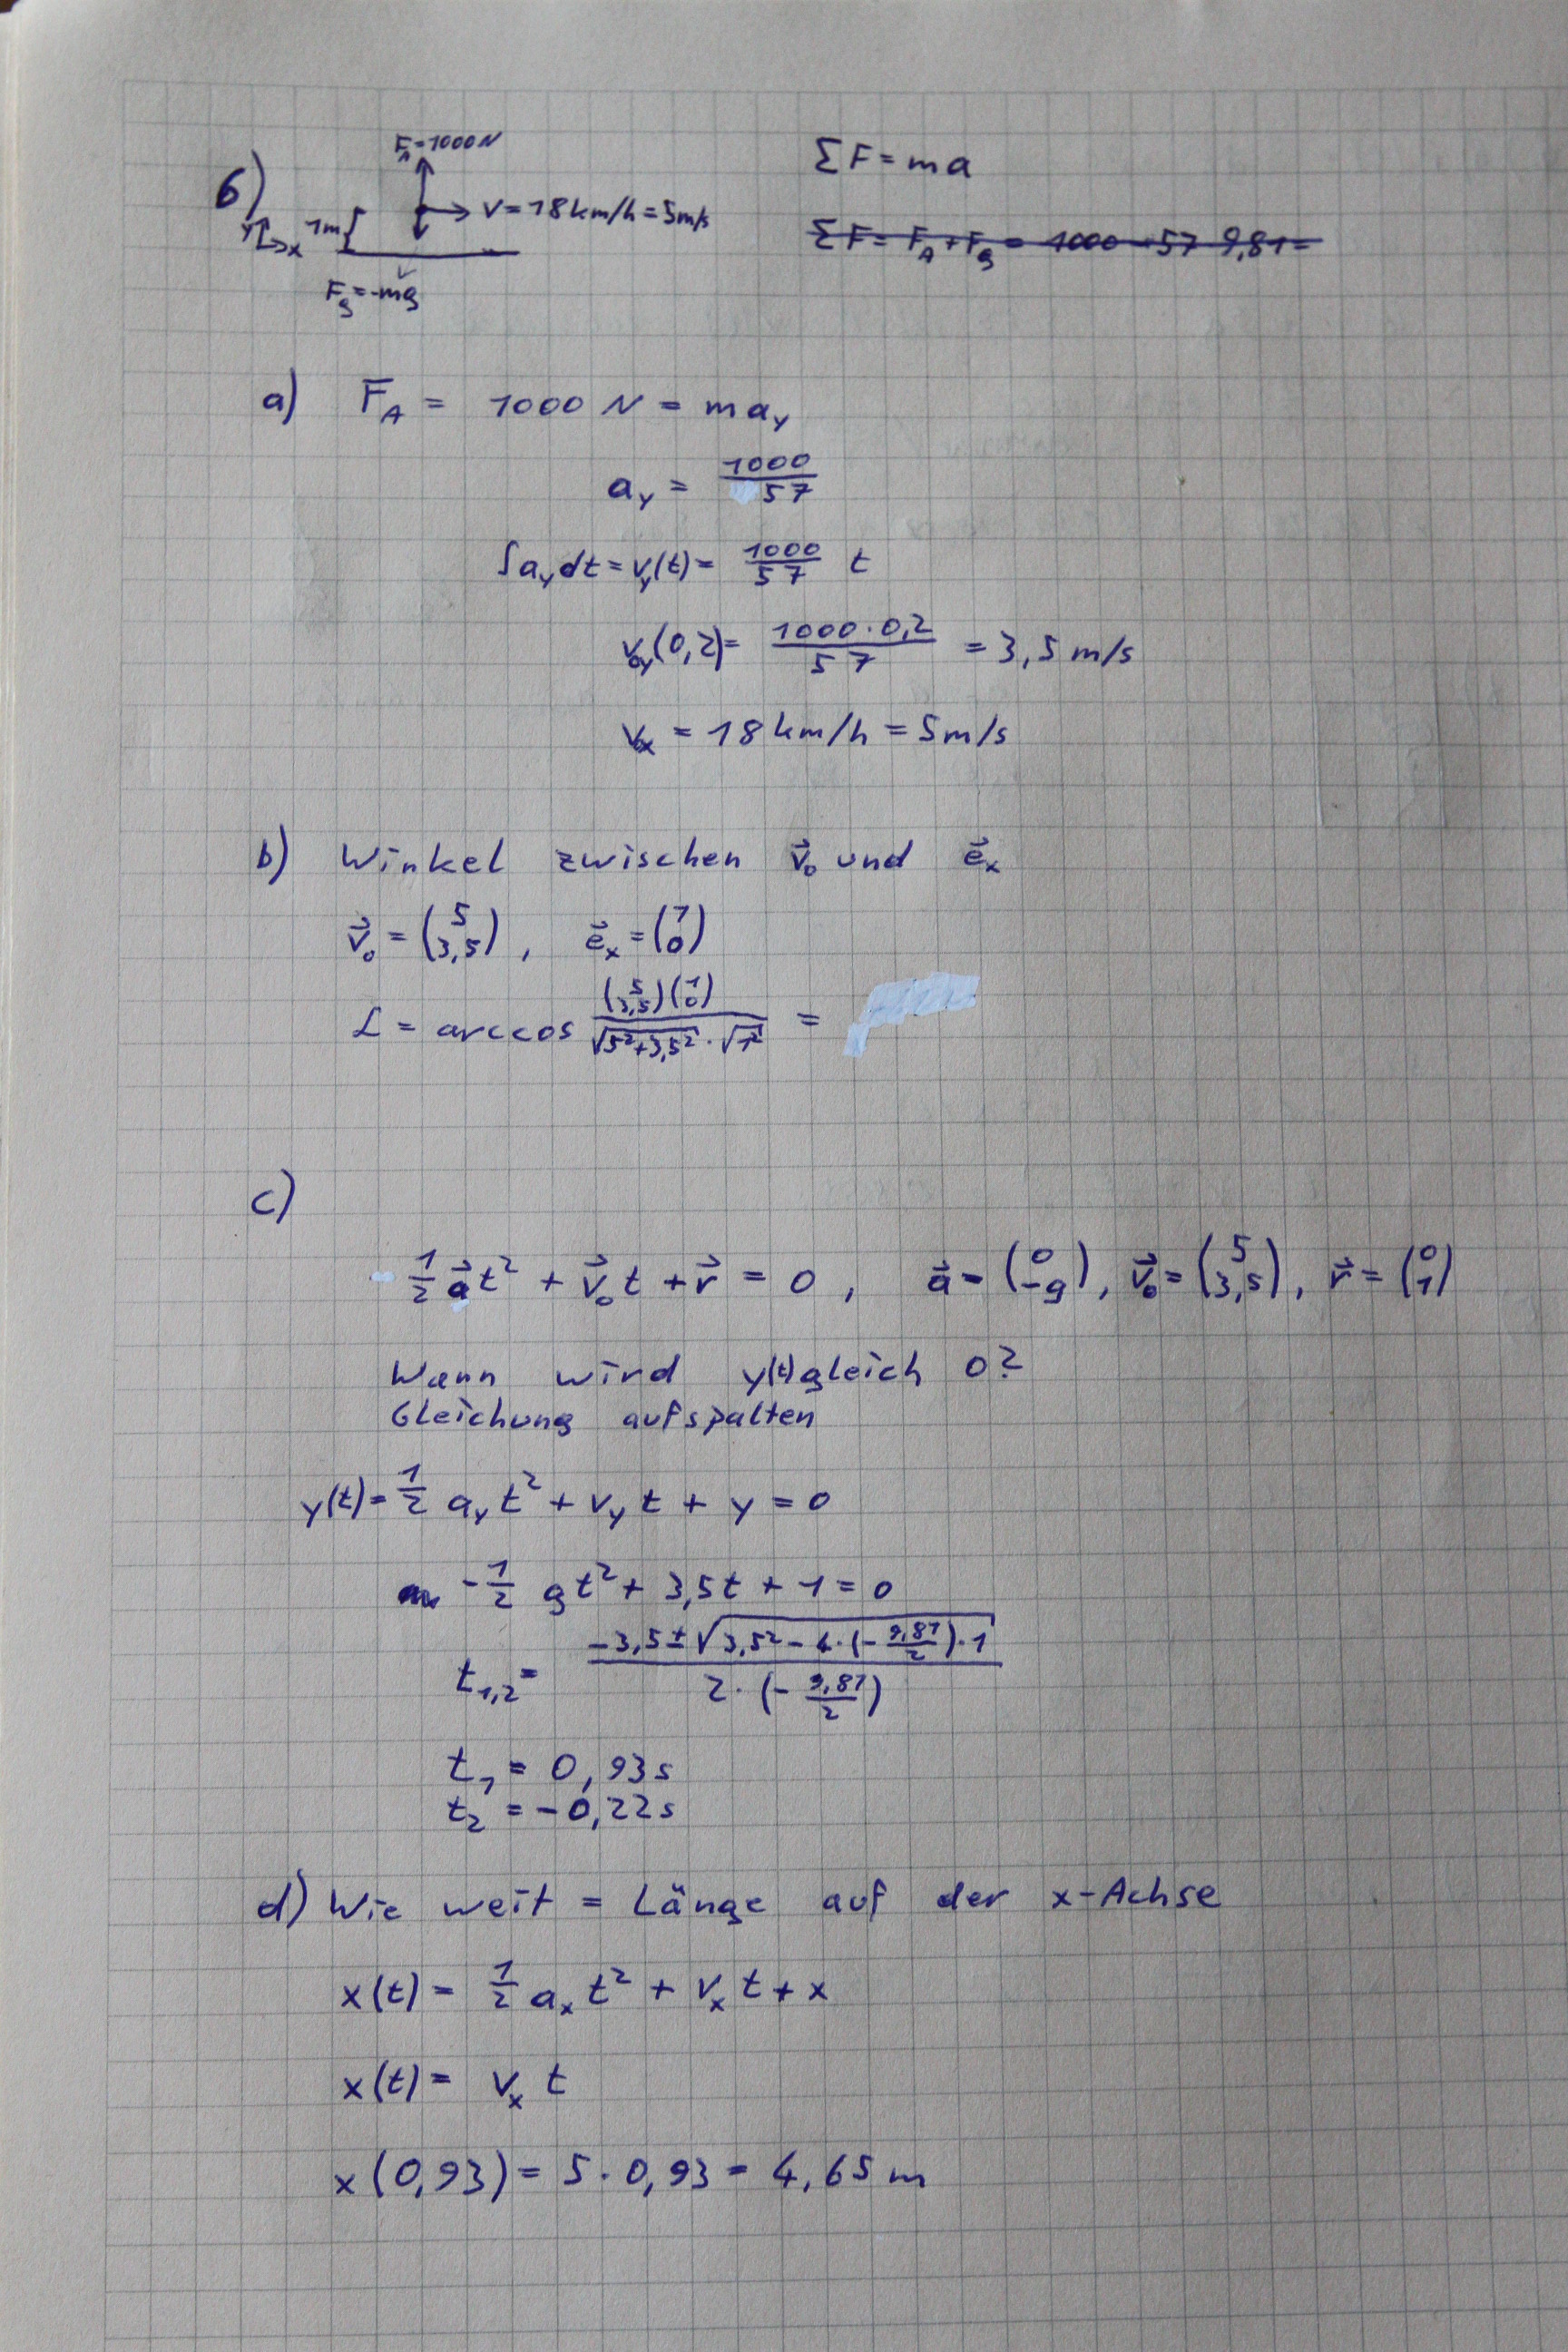 6)
F_A = 1000 N
V = 18 km/h = 5 m/s
1m
y
x
F_g = -mg
ΣF = ma
ΣF = F_A + F_g = 1000 - 57 · 9,81 =
a) F_A = 1000 N = m a_y
a_y = 1000/57
∫a_y dt = v_y(t) = 1000/57 t
v_0y(0,2) = 1000·0,2/57 = 3,5 m/s
v_0x = 18 km/h = 5 m/s
b) Winkel zwischen v⃗_0 und e⃗_x
v⃗_0 = (5 3,5), e⃗_x = (1 0)
∠ = arccos (5 3,5)(1 0)/√5²+3,5² · √1² =
c)
1/2 a⃗t² + v⃗_0 t + r⃗ = 0, a⃗ = (0 -g), v⃗_0 = (5 3,5), r⃗ = (0 1)
Wann wird y(t) gleich 0?
Gleichung aufspalten
y(t) = 1/2 a_y t² + v_y t + y = 0
-1/2 gt² + 3,5t + 1 = 0
t_1,2 = -3,5 ± √3,5² - 4·(-9,81/2)·1 / 2·(-9,81/2)
t_1 = 0,93s
t_2 = -0,22s
d) Wie weit = Länge auf der x-Achse
x(t) = 1/2 a_x t² + v_x t + x
x(t) = v_x t
x(0,93) = 5 · 0,93 = 4,65 m